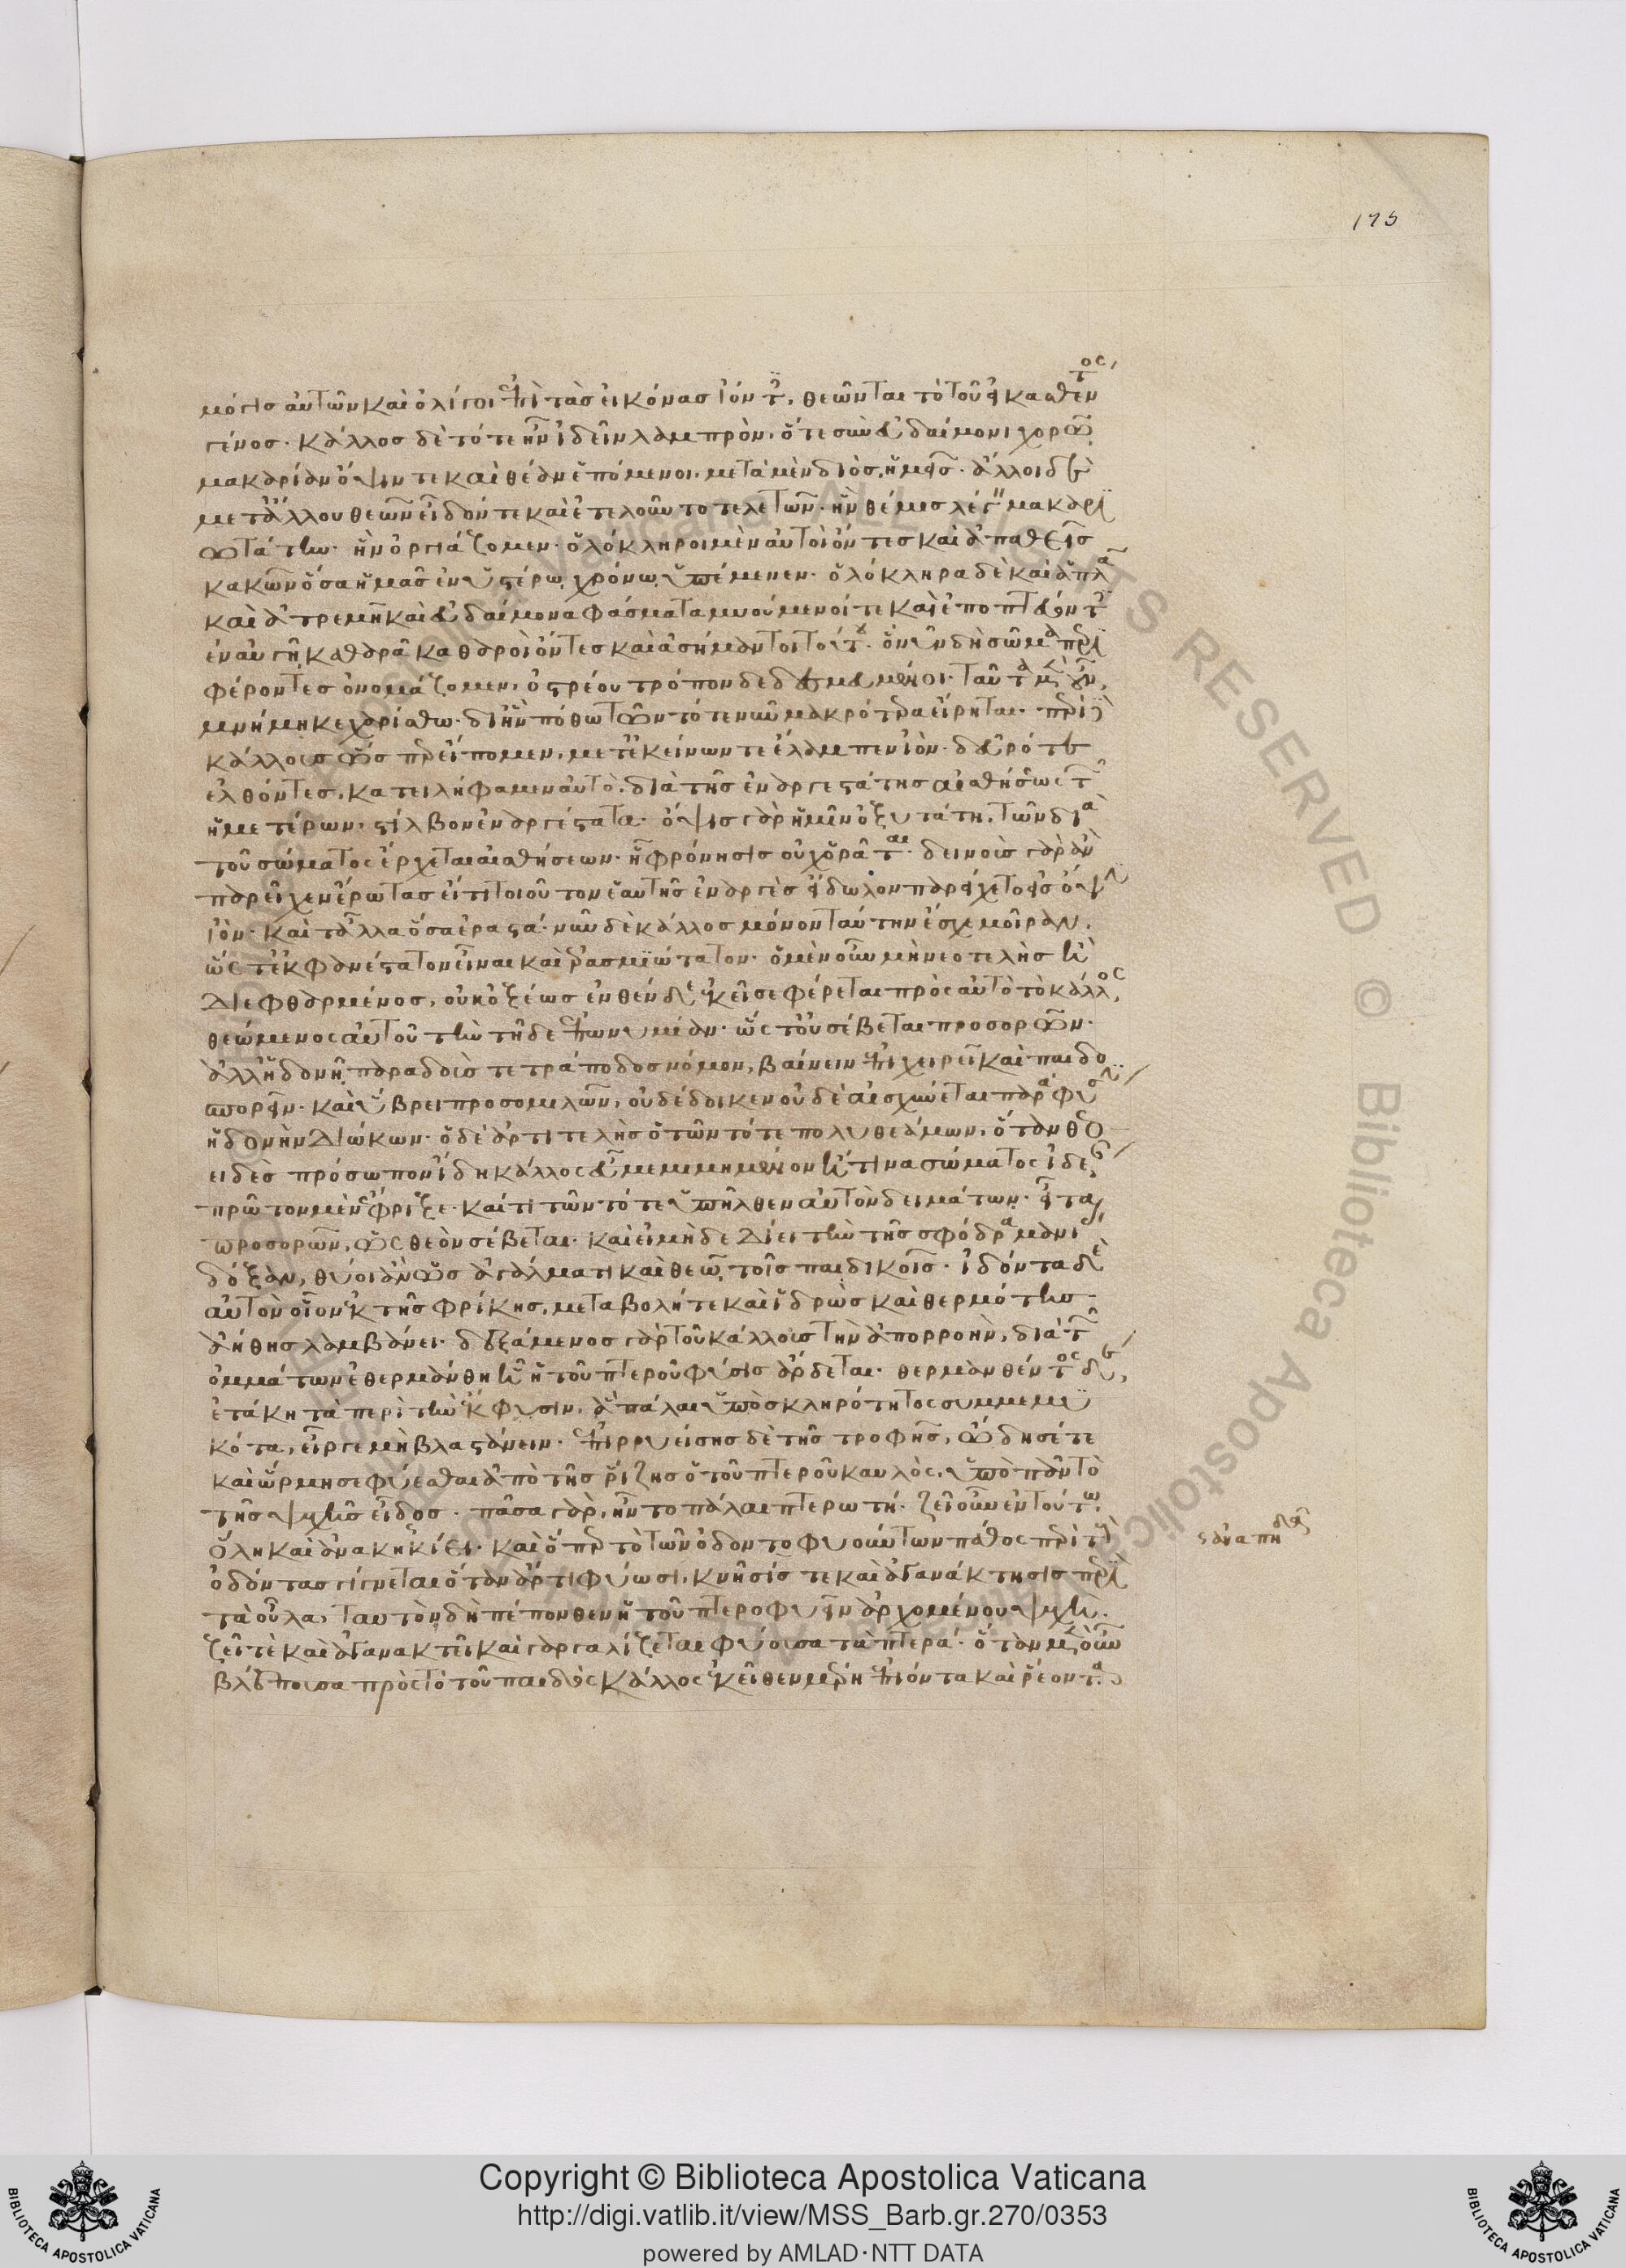 175
μόγις αὐτῶν καὶ ὀλίγοι ἐπὶ τὰς εἰκόνας ἰόντες, θεῶνται τὸ τοῦ εἰκασθέντος
γένος. κάλλος δὲ τότε ἦν ἰδεῖν λαμπρὸν, ὅτε σὺν εὐδαίμονι χορῶ
μακαρίαν ὄψιν τε καὶ θέαν ἑπόμενοι. μετὰ μὲν διὸς, ἡμεῖς. ἄλλοι δὲ
μετ' ἄλλου θεῶν εἶδόν τε καὶ ἐτελοῦντο τελετῶν. ἣν θέμις λέγειν μακαρι
ωτάτην. ἣν ὀργιάζομεν. ὁλόκληροι μὲν αὐτοὶ ὄντες καὶ ἀπαθεῖς
κακῶν ὅσα ἡμᾶς ἐν ὑστέρω χρόνω ὑπέμενεν. ὁλόκληρα δὲ καὶ ἁπλᾶ
καὶ ἀτρεμῆ καὶ εὐδαίμονα φάσματα μυούμενοί τε καὶ ἐποπτεύοντες
ἐν αὐγῆ καθαρᾶ καθαροὶ ὄντες καὶ ἀσήμαντοι τούτου. ὃ νῦν δὴ σῶμα περι
φέροντες ὀνομάζομεν, ὀστρέου τρόπον δεδεσμευμένοι. ταῦτα μὲν οὖν,
μνήμη κεχαρίσθω. δι' ἣν πόθω τῶν τότε νῦν μακρότερα εἴρηται. περὶ δὲ
κάλλους ὥσπερ εἴπομεν, μετ' ἐκείνων τε ἔλαμπεν ἰὸν. δεῦρό τε
ἐλθόντες, κατειλήφαμεν αὐτὸ, διὰ τῆς ἐναργεστάτης αἰσθήσεως τῶν
ἡμετέρων, στίλβον ἐναργέστατα. ὄψις γὰρ ἡμῖν ὀξυτάτη, τῶν διὰ
τοῦ σώματος ἔρχεται αἰσθήσεων. ἧ φρόνησις οὐχ ὁρᾶται. δεινοὺς γὰρ ἂν
παρεῖχεν ἔρωτας εἴ τι τοιοῦτον ἑαυτῆς ἐναργὲς εἴδωλον παρείχετο εἰς ὄψιν
ἰὸν. καὶ τἄλλα ὅσα ἐραστά. νῦν δὲ κάλλος μόνον ταύτην ἔσχε μοῖραν.
ὥστ' ἐκφανέστατον εἶναι καὶ ἐρασμιώτατον. ὁ μὲν οὖν μὴ νεοτελὴς ἢ
διεφθαρμένος, οὐκ ὀξέως ἐνθένδε ἐκεῖσε φέρεται πρὸς αὐτὸ τὸ κάλλος,
θεώμενος αὐτοῦ τὴν τῆδε ἐπωνυμίαν. ὥστ' οὐ σέβεται προσορῶν.
ἀλλ' ἡδονῆ παραδοὺς τετράποδος νόμον, βαίνειν ἐπιχειρεῖ καὶ παιδο
σπορεῖν. καὶ ὕβρει προσομιλῶν, οὐ δέδοικεν οὐδὲ αἰσχύνεται παρὰ φύσιν
ἡδονὴν διώκων. ὁ δὲ ἀρτιτελὴς ὁ τῶν τότε πολυθεάμων, ὅταν θεο
ειδὲς πρόσωπον ἴδη κάλλος εὖ μεμιμημένον ἤ τινα σώματος ἰδέαν,
πρῶτον μὲν ἔφριξε. καί τι τῶν τότε ὑπῆλθεν αὐτὸν δειμάτων. εἶτα
προσορῶν, ὡς θεὸν σέβεται. καὶ εἰ μὴ δεδίει τὴν τῆς σφόδρα μανίας
δόξαν, θύοι ἂν ὡς ἀγάλματι καὶ θεῶ τοῖς παιδικοῖς. ἰδόντα δὲ
αὐτὸν οἷον ἐκ τῆς φρίκης, μεταβολή τε καὶ ἱδρὼς καὶ θερμότης
ἀήθης λαμβάνει. δεξάμενος γὰρ τοῦ κάλλους τὴν ἀπορροὴν, διὰ τῶν
ὀμμάτων ἐθερμάνθη ἧ ἡ τοῦ πτεροῦ φύσις ἄρδεται. θερμανθέντος δὲ,
ἐτάκη τὰ περὶ τὴν ἔκφυσιν, ἃ πάλαι ὑπὸ σκληρότητος συμμεμυ
κότα, εἶργε μὴ βλαστάνειν. ἐπιρρυείσης δὲ τῆς τροφῆς, ὤδησέ τε
καὶ ὥρμησε φύεσθαι ἀπὸ τῆς ῥίζης ὁ τοῦ πτεροῦ καυλὸς, ὑπὸ πᾶν τὸ
τῆς ψυχῆς εἶδος. πᾶσα γὰρ, ἦν τὸ πάλαι πτερωτή. ζεῖ οὖν ἐν τούτω
ὅλη καὶ ἀνακηκίει. καὶ ὅπερ τὸ τῶν ὀδοντοφυούντων πάθος περὶ τοὺς
ὀδόντας γίγνεται ὅταν ἄρτι φύωσι, κνῆσίς τε καὶ ἀγανάκτησις περὶ
τὰ οὖλα, ταυτὸν δὴ πέπονθεν ἡ τοῦ πτεροφυεῖν ἀρχομένου ψυχή.
ζεῖ τὲ καὶ ἀγανακτεῖ καὶ γαργαλίζεται φύουσα τὰ πτερά. ὅταν μὲν οὖν
βλέπουσα πρὸς τὸ τοῦ παιδὸς κάλλος ἐκεῖθεν μέρη ἐπιόντα καὶ ῥέοντα
Copyright © Biblioteca Apostolica Vaticana
http://digi.vatlib.it/view/MSS_Barb.gr.270/0353
powered by AMLAD·NTT DATA
BIBLIOTECA APOSTOLICA VATICANA
BIBLIOTECA APOSTOLICA VATICANA